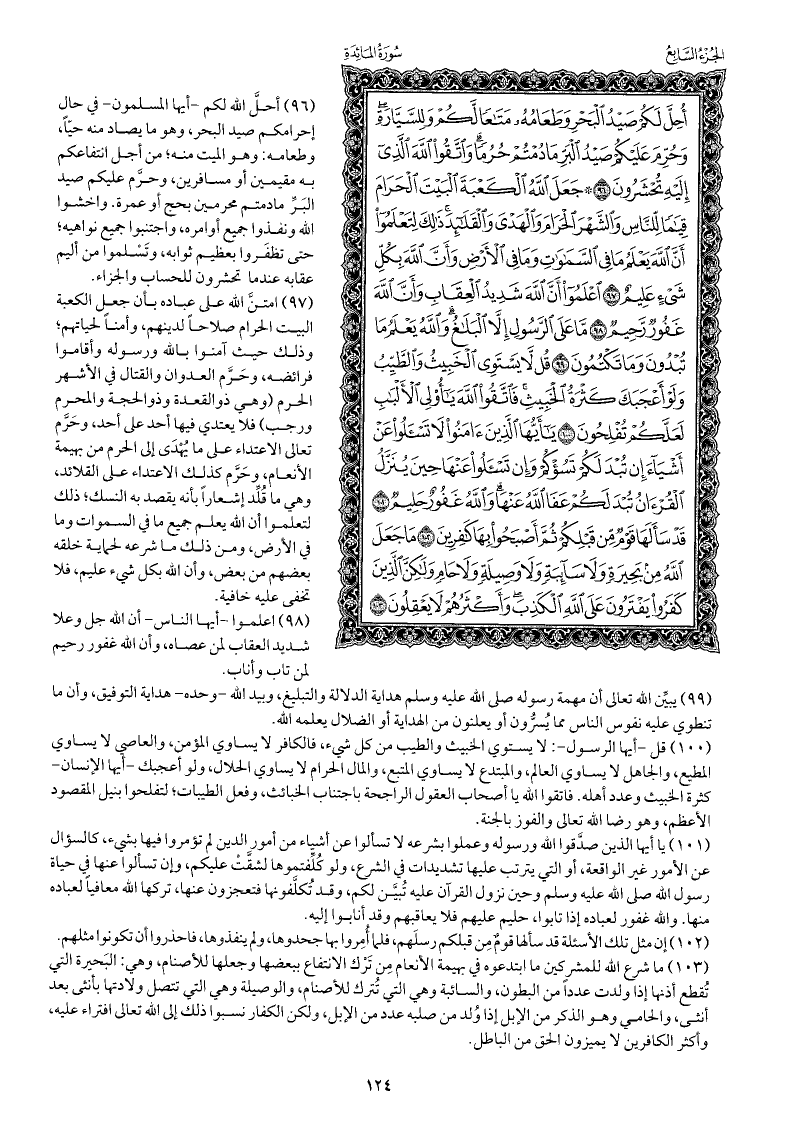 الجزء السابع
سورة المائدة
أُحِلَّ لَكُمْ صَيْدُ الْبَحْرِ وَطَعَامُهُ مَتَاعًا لَّكُمْ وَلِلسَّيَّارَةِ
وَحُرِّمَ عَلَيْكُمْ صَيْدُ الْبَرِّ مَا دُمْتُمْ حُرُمًا وَاتَّقُوا اللَّهَ الَّذِي
إِلَيْهِ تُحْشَرُونَ ٩٦ ۞ جَعَلَ اللَّهُ الْكَعْبَةَ الْبَيْتَ الْحَرَامَ
قِيَامًا لِّلنَّاسِ وَالشَّهْرَ الْحَرَامَ وَالْهَدْيَ وَالْقَلَائِدَ ذَلِكَ لِتَعْلَمُوا
أَنَّ اللَّهَ يَعْلَمُ مَا فِي السَّمَاوَاتِ وَمَا فِي الْأَرْضِ وَأَنَّ اللَّهَ بِكُلِّ
شَيْءٍ عَلِيمٌ ٩٧ اعْلَمُوا أَنَّ اللَّهَ شَدِيدُ الْعِقَابِ وَأَنَّ اللَّهَ
غَفُورٌ رَّحِيمٌ ٩٨ مَّا عَلَى الرَّسُولِ إِلَّا الْبَلَاغُ وَاللَّهُ يَعْلَمُ مَا
تُبْدُونَ وَمَا تَكْتُمُونَ ٩٩ قُل لَّا يَسْتَوِي الْخَبِيثُ وَالطَّيِّبُ
وَلَوْ أَعْجَبَكَ كَثْرَةُ الْخَبِيثِ فَاتَّقُوا اللَّهَ يَا أُولِي الْأَلْبَابِ
لَعَلَّكُمْ تُفْلِحُونَ ١٠٠ يَا أَيُّهَا الَّذِينَ آمَنُوا لَا تَسْأَلُوا عَنْ
أَشْيَاءَ إِن تُبْدَ لَكُمْ تَسُؤْكُمْ وَإِن تَسْأَلُوا عَنْهَا حِينَ يُنَزَّلُ
الْقُرْآنُ تُبْدَ لَكُمْ عَفَا اللَّهُ عَنْهَا وَاللَّهُ غَفُورٌ حَلِيمٌ ١٠١
قَدْ سَأَلَهَا قَوْمٌ مِّن قَبْلِكُمْ ثُمَّ أَصْبَحُوا بِهَا كَافِرِينَ ١٠٢ مَا جَعَلَ
اللَّهُ مِن بَحِيرَةٍ وَلَا سَائِبَةٍ وَلَا وَصِيلَةٍ وَلَا حَامٍ وَلَكِنَّ الَّذِينَ
كَفَرُوا يَفْتَرُونَ عَلَى اللَّهِ الْكَذِبَ وَأَكْثَرُهُمْ لَا يَعْقِلُونَ ١٠٣
(٩٦) أحلَّ الله لكم -أيها المسلمون- في حال
إحرامكم صيد البحر، وهو ما يصاد منه حيّاً،
وطعامه: وهو الميت منه؛ من أجل انتفاعكم
به مقيمين أو مسافرين، وحرَّم عليكم صيد
البَرِّ مادمتم محرمين بحج أو عمرة. واخشوا
الله ونفذوا جميع أوامره، واجتنبوا جميع نواهيه؛
حتى تظفَروا بعظيم ثوابه، وتَسْلموا من أليم
عقابه عندما تحشرون للحساب والجزاء.
(٩٧) امتنَّ الله على عباده بأن جعل الكعبة
البيت الحرام صلاحاً لدينهم، وأمناً لحياتهم؛
وذلك حيث آمنوا بالله ورسوله وأقاموا
فرائضه، وحَرَّم العدوان والقتال في الأشهر
الحرم (وهي ذوالقعدة وذوالحجة والمحرم
ورجب) فلا يعتدي فيها أحد على أحد، وحَرَّم
تعالى الاعتداء على ما يُهْدَى إلى الحرم من بهيمة
الأنعام، وحَرَّم كذلك الاعتداء على القلائد،
وهي ما قُلِّد إشعاراً بأنه يقصد به النسك؛ ذلك
لتعلموا أن الله يعلم جميع ما في السموات وما
في الأرض، ومن ذلك ما شرعه لحماية خلقه
بعضهم من بعض، وأن الله بكل شيء عليم، فلا
تخفى عليه خافية.
(٩٨) اعلموا -أيها الناس- أن الله جل وعلا
شديد العقاب لمن عصاه، وأن الله غفور رحيم
لمن تاب وأناب.
(٩٩) يبيِّن الله تعالى أن مهمة رسوله صلى الله عليه وسلم هداية الدلالة والتبليغ، وبيد الله -وحده- هداية التوفيق، وأن ما
تنطوي عليه نفوس الناس مما يُسرُّون أو يعلنون من الهداية أو الضلال يعلمه الله.
(١٠٠) قل -أيها الرسول-: لا يستوي الخبيث والطيب من كل شيء، فالكافر لا يساوي المؤمن، والعاصي لا يساوي
المطيع، والجاهل لا يساوي العالم، والمبتدع لا يساوي المتبع، والمال الحرام لا يساوي الحلال، ولو أعجبك -أيها الإنسان-
كثرة الخبيث وعدد أهله. فاتقوا الله يا أصحاب العقول الراجحة باجتناب الخبائث، وفعل الطيبات؛ لتفلحوا بنيل المقصود
الأعظم، وهو رضا الله تعالى والفوز بالجنة.
(١٠١) يا أيها الذين صدَّقوا الله ورسوله وعملوا بشرعه لا تسألوا عن أشياء من أمور الدين لم تؤمروا فيها بشيء، كالسؤال
عن الأمور غير الواقعة، أو التي يترتب عليها تشديدات في الشرع، ولو كُلِّفتموها لشقَّتْ عليكم، وإن تسألوا عنها في حياة
رسول الله صلى الله عليه وسلم وحين نزول القرآن عليه تُبيَّن لكم، وقد تُكلَّفونها فتعجزون عنها، تركها الله معافياً لعباده
منها. والله غفور لعباده إذا تابوا، حليم عليهم فلا يعاقبهم وقد أنابوا إليه.
(١٠٢) إن مثل تلك الأسئلة قد سألها قومٌ مِن قبلكم رسلَهم، فلما أُمِروا بها جحدوها، ولم ينفذوها، فاحذروا أن تكونوا مثلهم.
(١٠٣) ما شرع الله للمشركين ما ابتدعوه في بهيمة الأنعام مِن تَرْك الانتفاع ببعضها وجعلها للأصنام، وهي: البَحيرة التي
تُقطع أذنها إذا ولدت عدداً من البطون، والسائبة وهي التي تُترك للأصنام، والوصيلة وهي التي تتصل ولادتها بأنثى بعد
أنثى، والحامي وهو الذكر من الإبل إذا وُلد من صلبه عدد من الإبل، ولكن الكفار نسبوا ذلك إلى الله تعالى افتراء عليه،
وأكثر الكافرين لا يميزون الحق من الباطل.
١٢٤